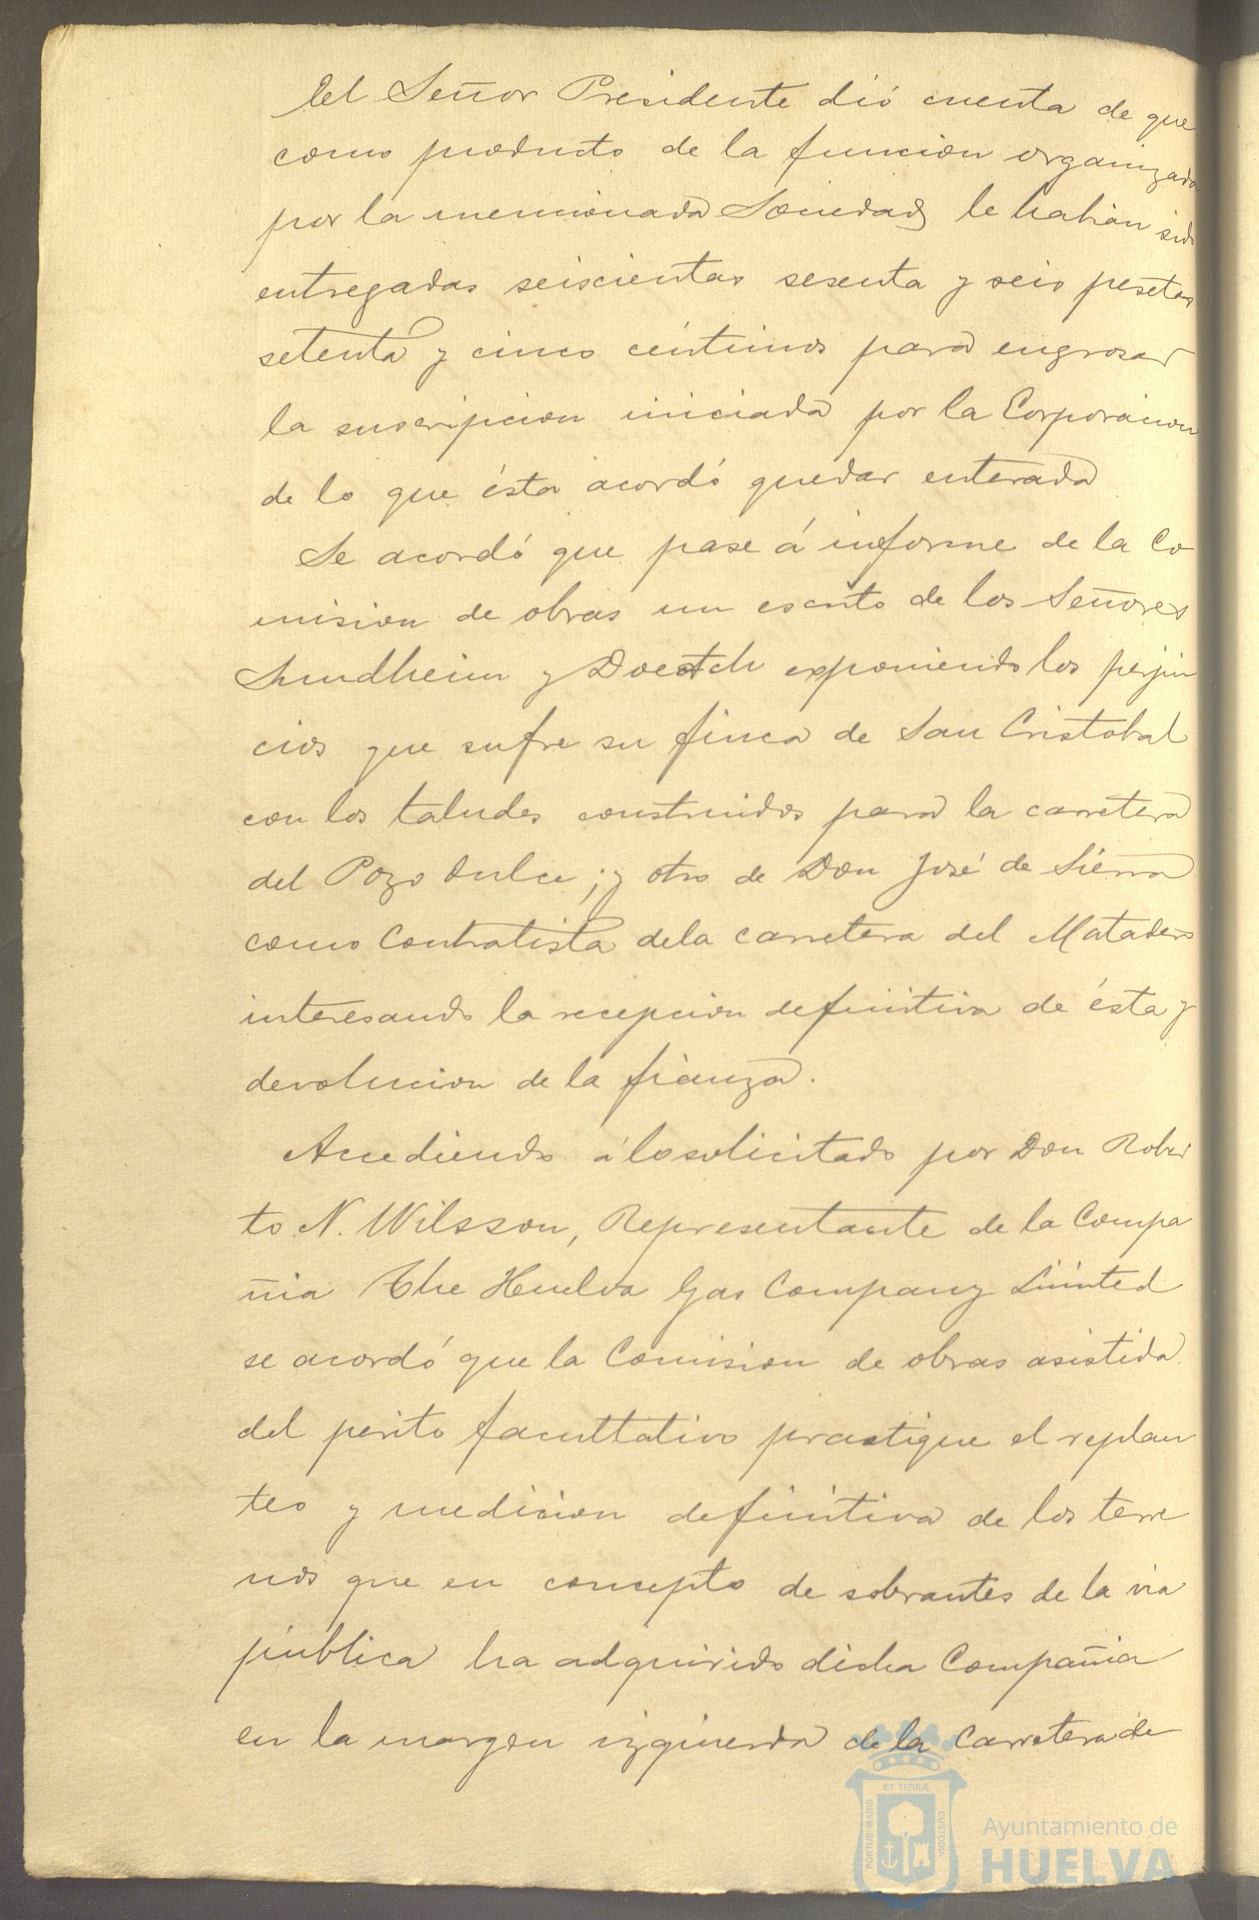 El Señor Presidente dió cuenta de que
como producto de la funcion organizada
por la mencionada Sociedad le habian sido
entregadas seiscientas sesenta y seis pesetas
setenta y cinco céntimos para engrosar
la suscripcion iniciada por la Corporacion
de lo que ésta acordó quedar enterada
Se acordó que pase á informe de la Co
mision de obras un escrito de los Señores
Sundheim y Doestch exponiendo los perjui
cios que sufre su finca de San Cristobal
con los taludes construidos para la carretera
del Pozo dulce; y otro de Don José de Sierra
como Contratista dela carretera del Matadero
interesando la recepcion definitiva de ésta y
devolucion de la fianza.
Accediendo á lo solicitado por Don Rober
to N. Wilsson, Representante de la Compa
ñia The Huelva Gas Company Limited
se acordó que la Comision de obras asistida
del perito facultativo practique el replan
teo y medicion definitiva de los terre
nos que en concepto de sobrantes de la via
pública ha adquirido dicha Compañia
en la margen izquierda de la Carretera de
PORTUS MARIS
ET TERRÆ
CUSTODIA
Ayuntamiento de
HUELVA